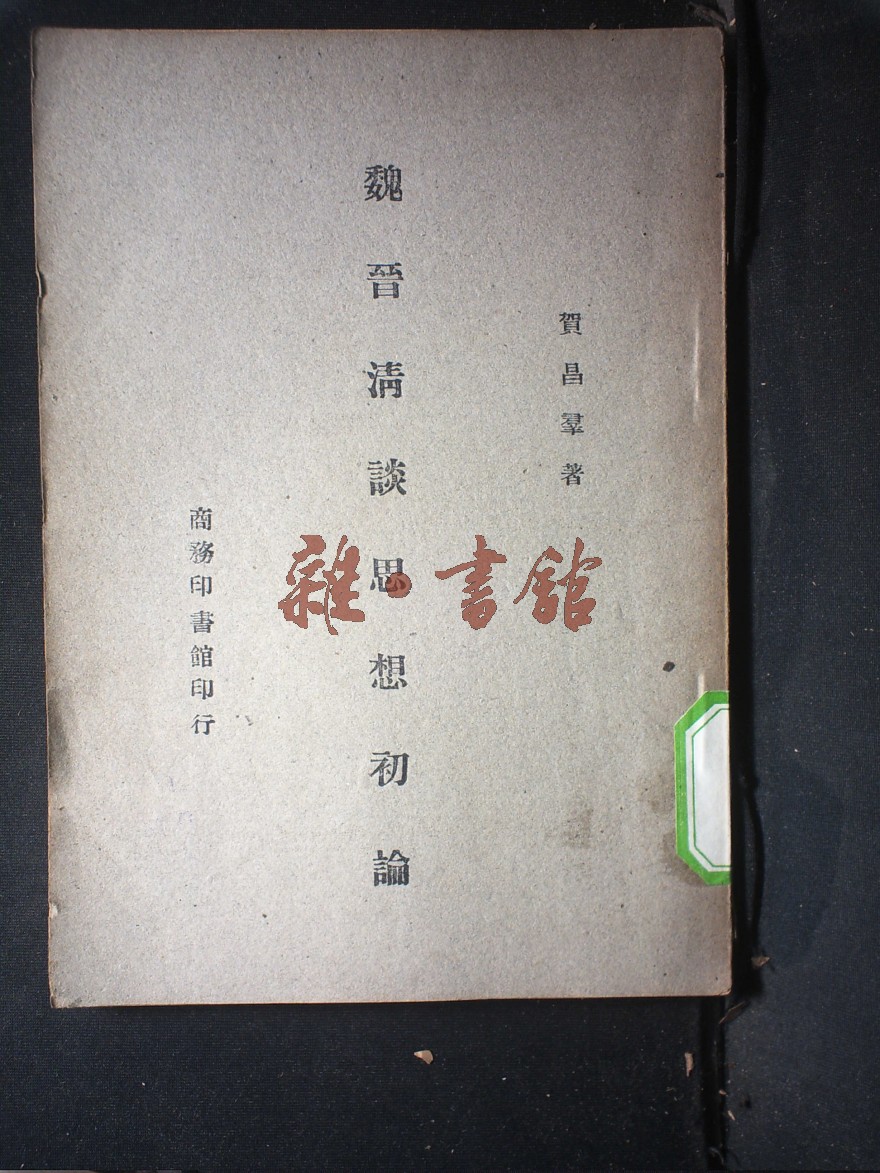 賀昌羣著
魏晉淸談思想初論
商務印書館印行
雜·書館